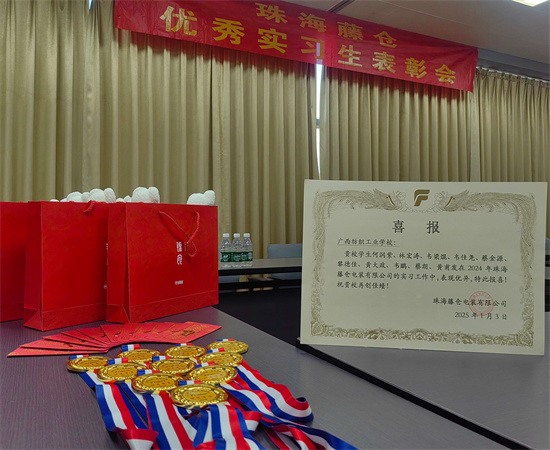 珠海藤仓
优秀实习生表彰会
喜报
广西纺织工业学校：
贵校学生何润紫、林宏涛、韦荣媒、韦佳尧、蔡金源、
黎德佳、黄大政、韦鹏、蔡朝、黄甫发在2024年珠海
藤仓电装有限公司的实习工作中，表现优异，特此报喜！
祝贵校再创佳绩！
珠海藤仓电装有限公司
2025年1月3日